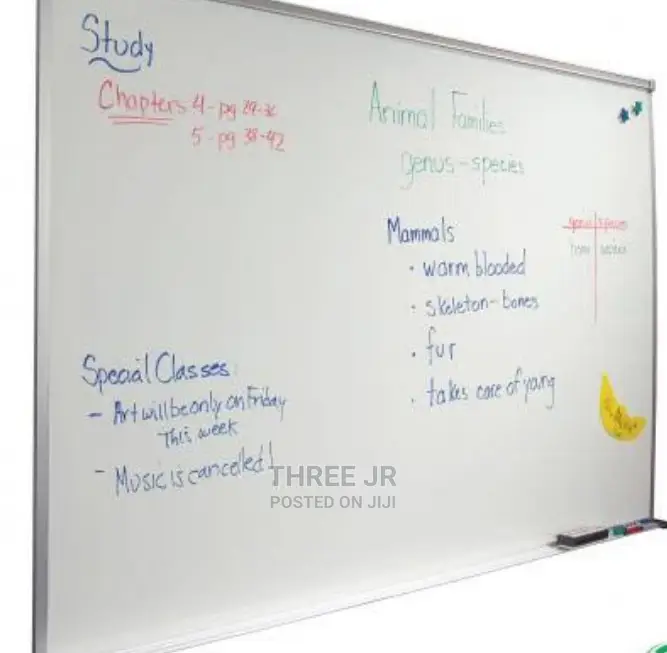 Study
Chapters 4 - pg 29-36
5 - pg 38-42
Animal Families
genus - species
Mammals
• warm blooded
• skeleton - bones
• fur
• takes care of young
genus species
homo sapiens
Special Classes
- Art will be only on Friday
This week
- Music is cancelled!
THREE JR
POSTED ON JIJI